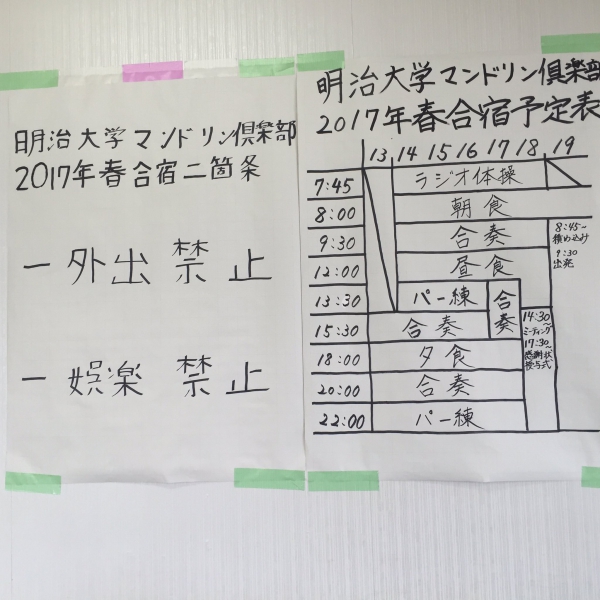 明治大学マンドリン倶楽部
2017年春合宿二箇条
一 外出 禁止
一 娯楽 禁止
明治大学マンドリン倶楽部
2017年春合宿予定表
13 14 15 16 17 18 19
7:45 ラジオ体操
8:00 朝食
9:30 合奏
12:00 昼食
13:30 パー練 合奏
15:30 合奏
18:00 夕食
20:00 合奏
22:00 パー練
8:45~
積め込み
9:30
出発
14:30~
ミーティング
17:30~
感謝状
授与式